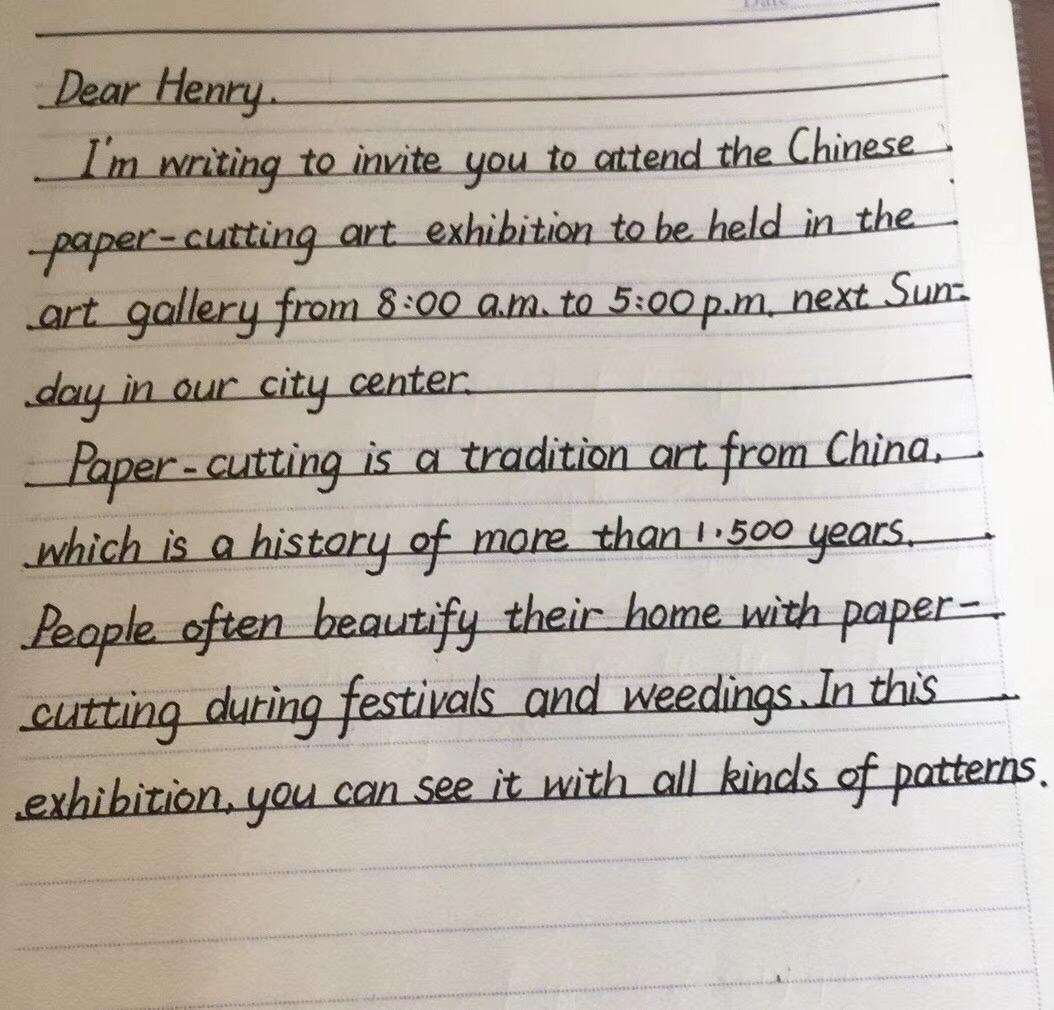 Dear Henry.
I'm writing to invite you to attend the Chinese
paper-cutting art exhibition to be held in the
art gallery from 8:00 a.m. to 5:00 p.m. next Sun-
day in our city center.
Paper-cutting is a tradition art from China,
which is a history of more than 1.500 years.
People often beautify their home with paper-
cutting during festivals and weedings. In this
exhibition, you can see it with all kinds of patterns.